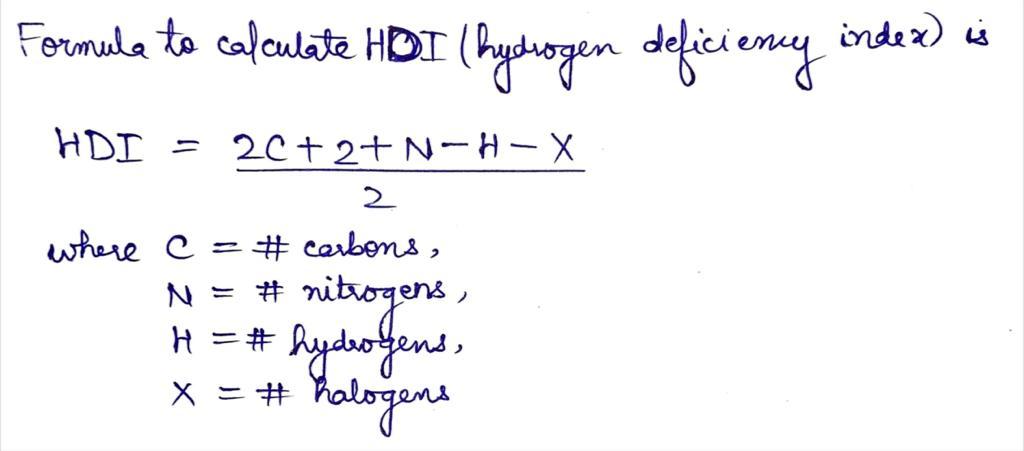 Formula to calculate HDI (hydrogen deficiency index) is
HDI = 2C+2+N-H-X
2
where C = # carbons,
N = # nitrogens,
H = # hydrogens,
X = # halogens